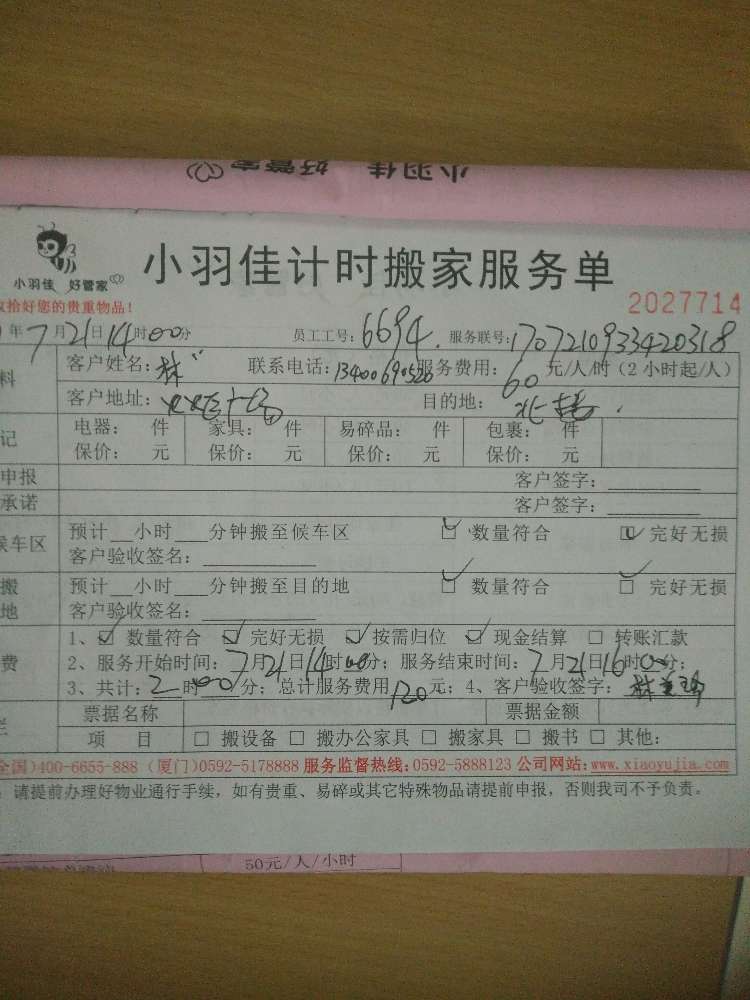 小羽佳 好管家
小羽佳 好管家
小羽佳计时搬家服务单
拾好您的贵重物品！
2027714
年7月21日14时00分 员工工号：6694 服务联号：1707210933420318
料 客户姓名：林 联系电话：13400690520 服务费用：60元/人/时（2小时起/人）
客户地址： 目的地：
记 电器： 件 家具： 件 易碎品： 件 包裹： 件
保价： 元 保价： 元 保价： 元 保价： 元
申报 客户签字：
承诺 客户签字：
候车区 预计__小时___分钟搬至候车区 ☑ 数量符合 ☑ 完好无损
客户验收签名：
搬 预计__小时___分钟搬至目的地 ☑ 数量符合 ☑ 完好无损
地 客户验收签名：
1、☑ 数量符合 ☑ 完好无损 ☑ 按需归位 ☑ 现金结算 □ 转账汇款
费 2、服务开始时间：7月21日14时00分；服务结束时间：7月21日16时00分；
3、共计：2时00分；总计服务费用120元；4、客户验收签字：林
票据名称 票据金额
栏 项 目 □ 搬设备 □ 搬办公家具 □ 搬家具 □ 搬书 □ 其他：
全国)400-6655-888（厦门)0592-5178888 服务监督热线：0592-5888123 公司网站：www.xiaoyujia.com
：请提前办理好物业通行手续，如有贵重、易碎或其它特殊物品请提前申报，否则我司不予负责。
50元/人/小时